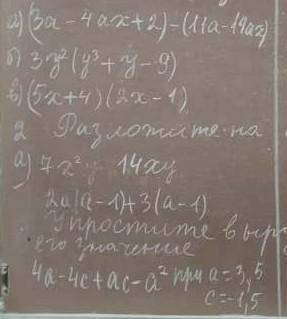 а) (3a - 4ax + 2) - (11a - 14ax)
б) 3y² (y³ + y - 9)
в) (5x + 4) (2x - 1)
2 Разложите на
а) 7x²y - 14xy
2a(a - 1) + 3(a - 1)
Упростите выра
его значение
4a - 4c + ac - a² при a = 3,5
c = -1,5